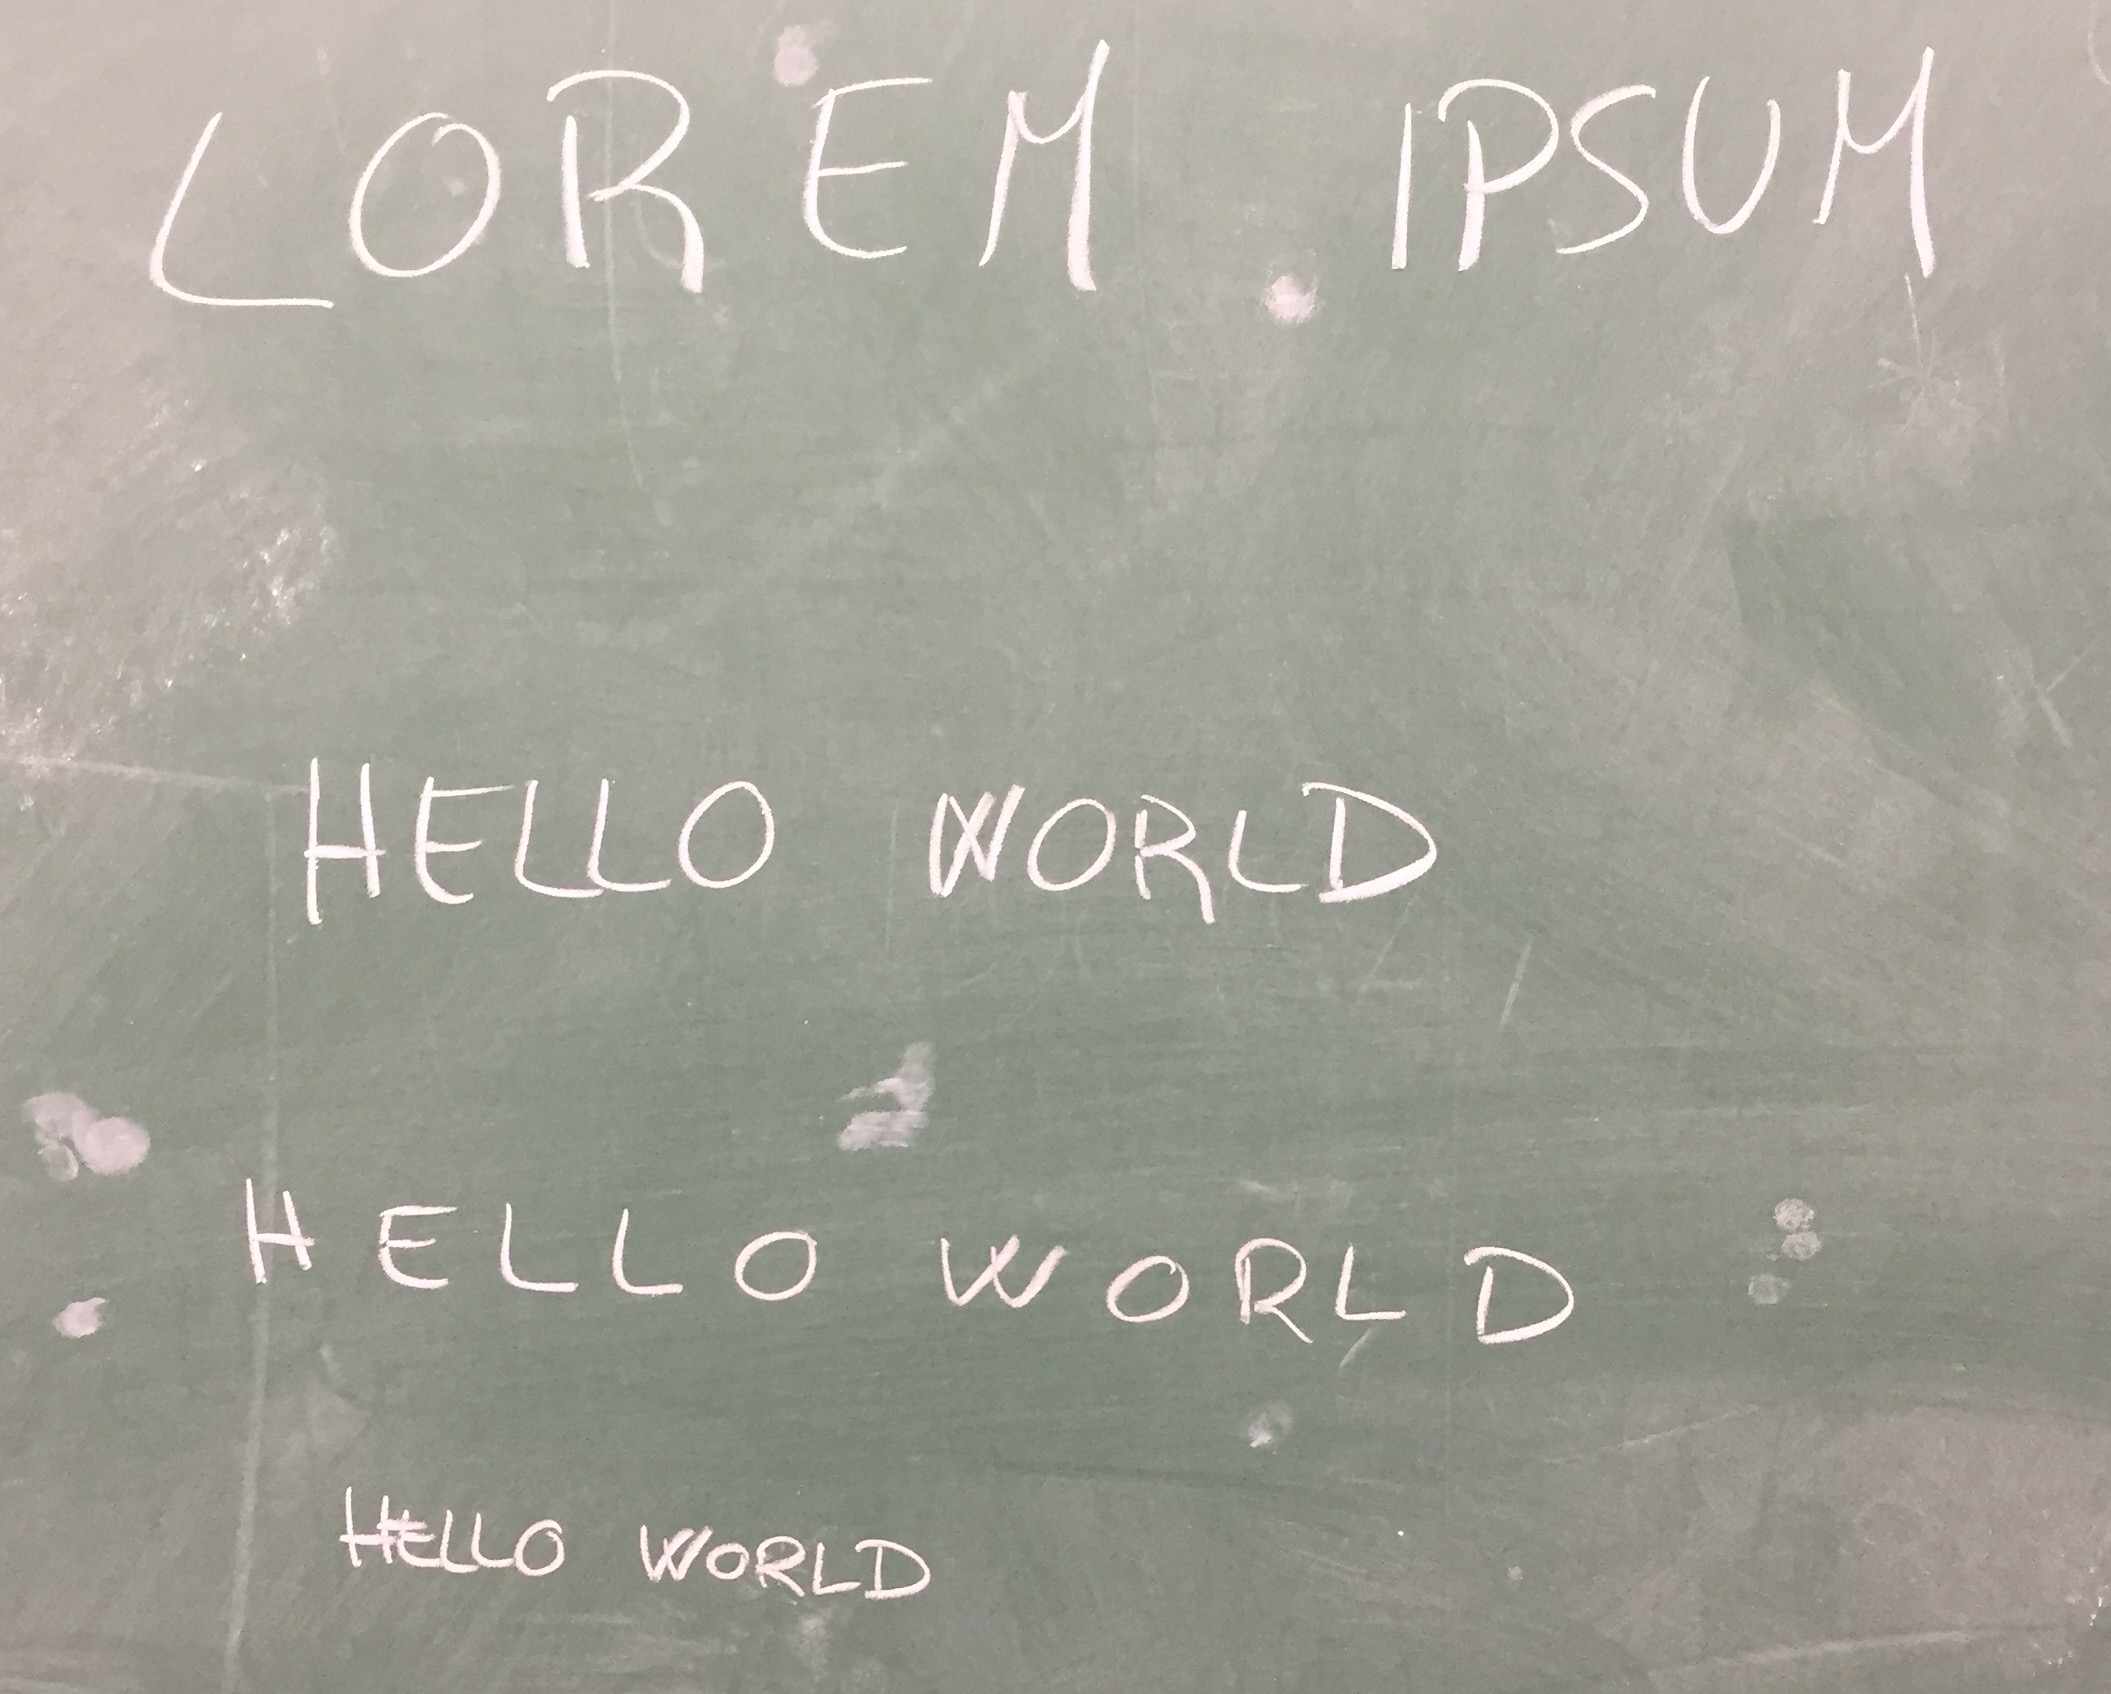 LOREM IPSUM
HELLO WORLD
HELLO WORLD
HELLO WORLD